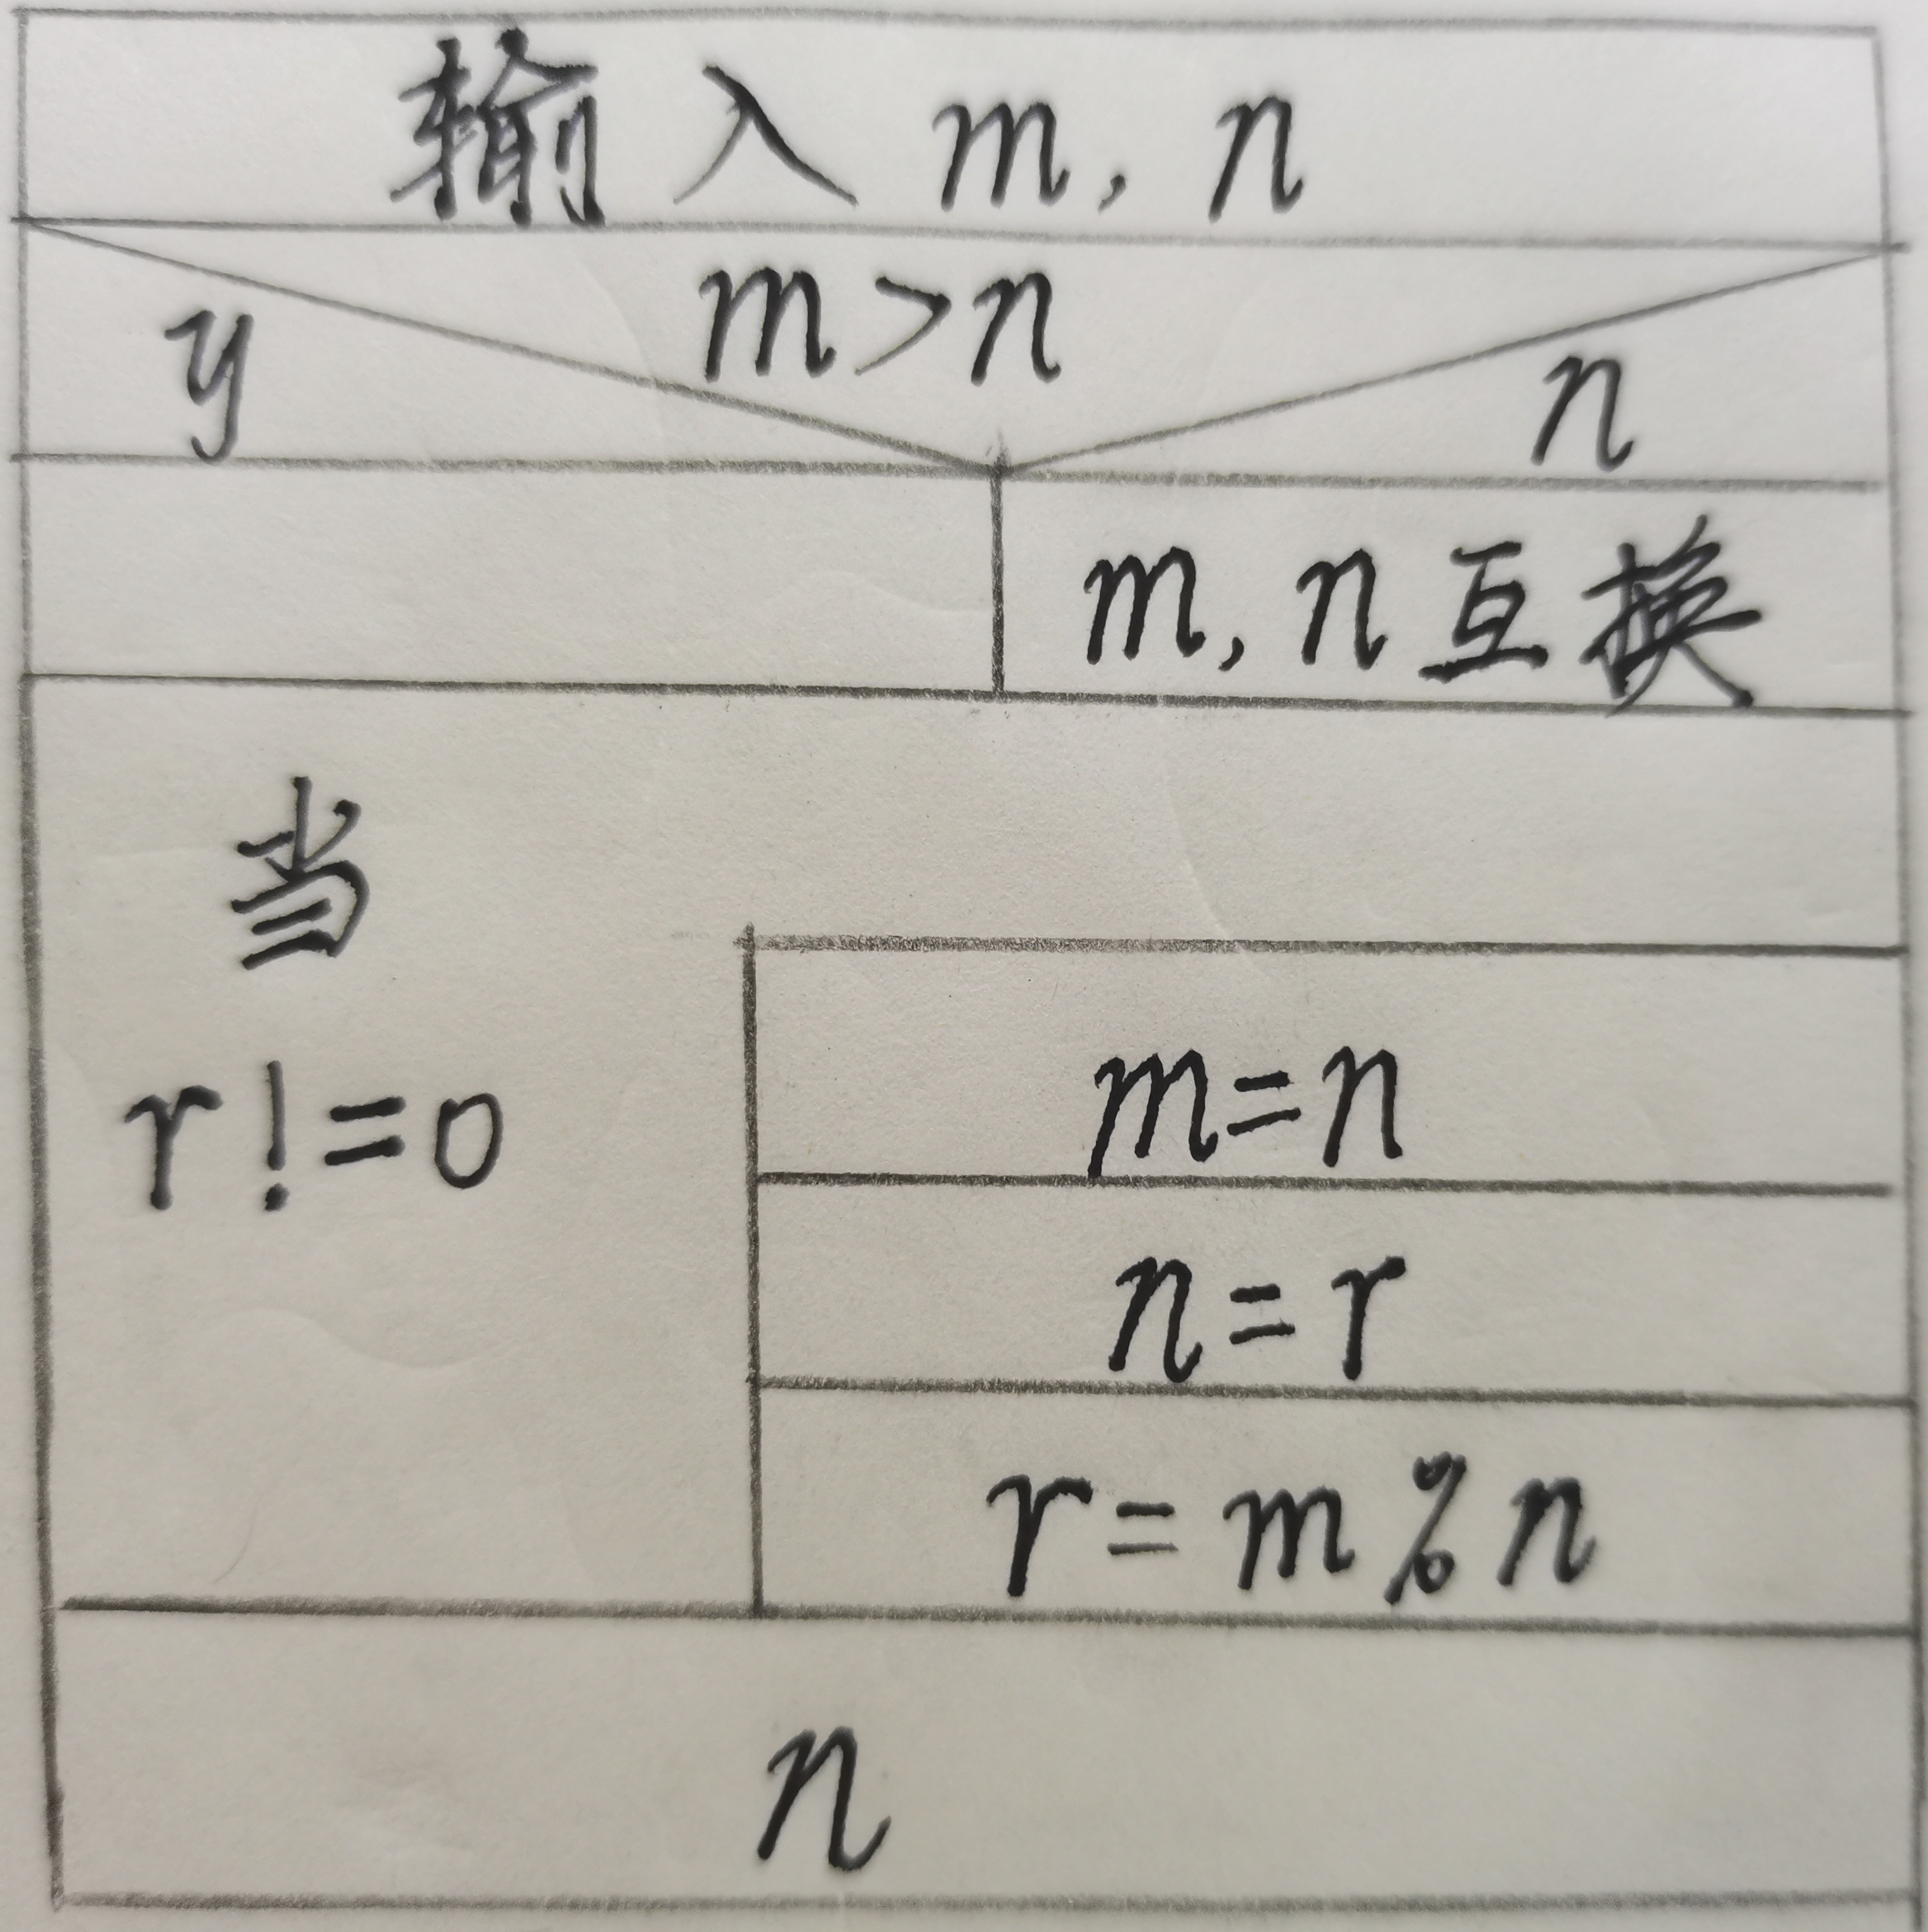 输入 m, n
m>n
y
n
m, n互换
当
r!=0
m=n
n=r
r=m%n
n